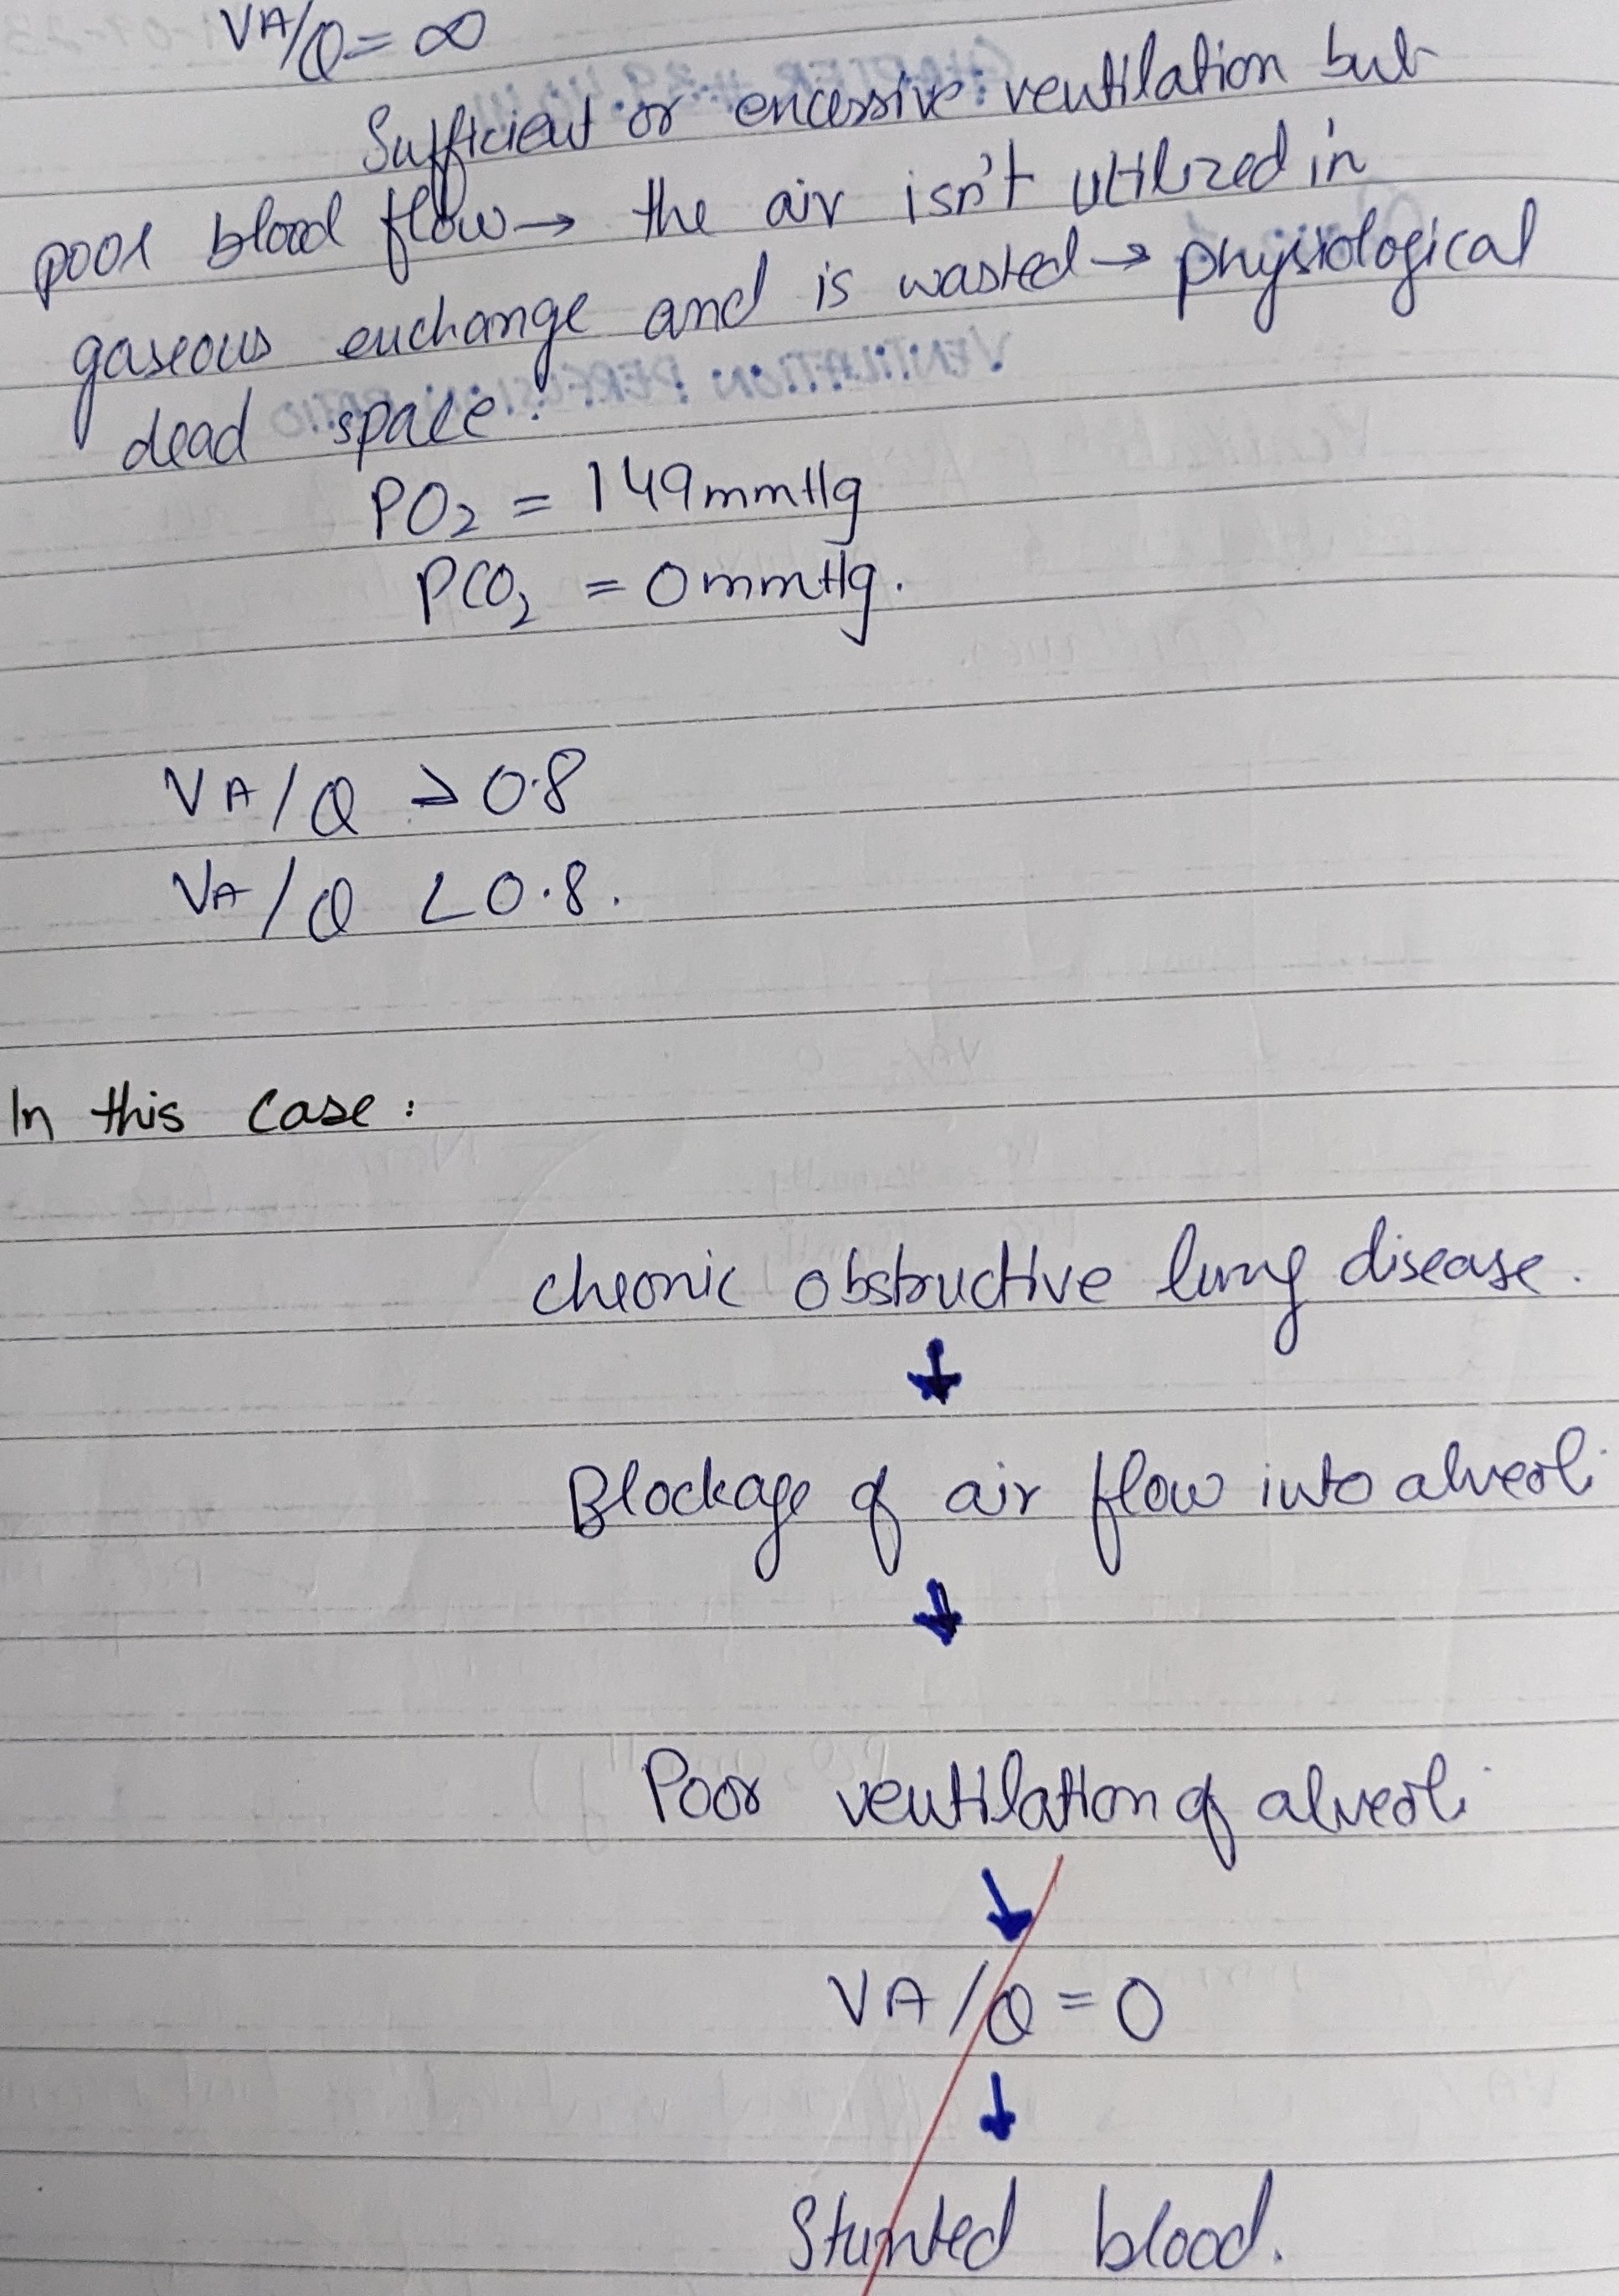 VA/Q = ∞
Sufficient or excessive ventilation but
poor blood flow → the air isn't utilized in
gaseous exchange and is wasted → physiological
dead space.
PO₂ = 149mmHg
PCO₂ = 0mmHg.
VA/Q > 0.8
VA/Q < 0.8.
In this case:
chronic obstructive lung disease.
↓
Blockage of air flow into alveoli
↓
Poor ventilation of alveoli
↓
VA/Q = 0
↓
Stunted blood.